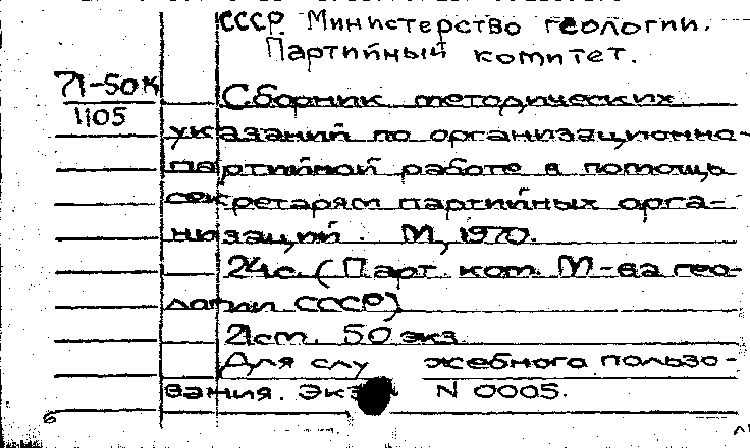 СССР. Министерство геологии.
Партийный комитет.
71-50к
1105
Сборник методических
указаний по организационно-
партийной работе в помощь
секретарям партийных орга-
низаций. М, 1970.
24с. (Парт. ком. М-ва гео-
логии СССР)
50 экз
Для служебного пользо-
вания. Экз N 0005.